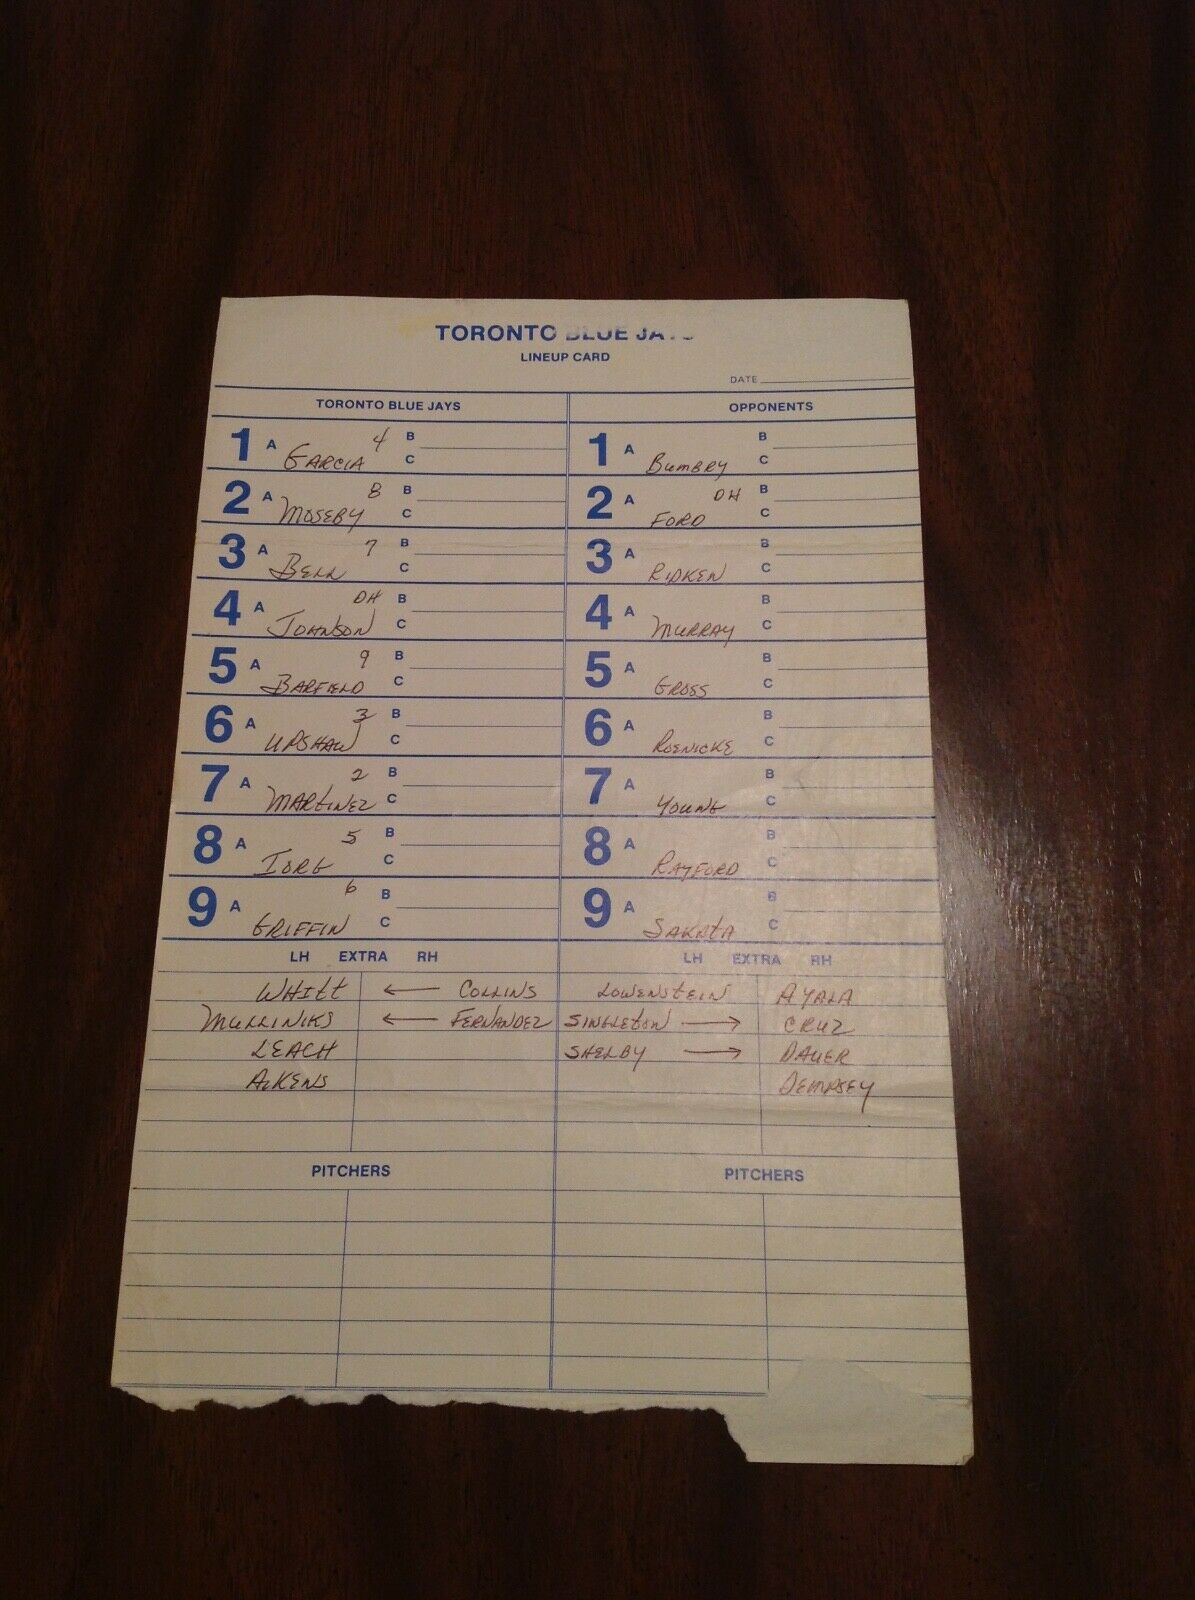 TORONTO BLUE JAYS
LINEUP CARD
DATE
TORONTO BLUE JAYS
1 A GARCIA 4 B C
2 A MOSEBY 8 B C
3 A BELL 7 B C
4 A JOHNSON DH B C
5 A BARFIELD 9 B C
6 A UPSHAW 3 B C
7 A MARTINEZ 2 B C
8 A IORG 5 B C
9 A GRIFFIN 6 B C
LH EXTRA RH
WHITT ← COLLINS
MULLINIKS ← FERNANDEZ
LEACH
AIKENS
PITCHERS
OPPONENTS
1 A BUMBRY B C
2 A FORD DH B C
3 A RIPKEN B C
4 A MURRAY B C
5 A GROSS B C
6 A ROENICKE B C
7 A YOUNG B C
8 A RAYFORD B C
9 A SAKATA B C
LH EXTRA RH
LOWENSTEIN AYALA
SINGLETON → CRUZ
SHELBY → DAUER
DEMPSEY
PITCHERS